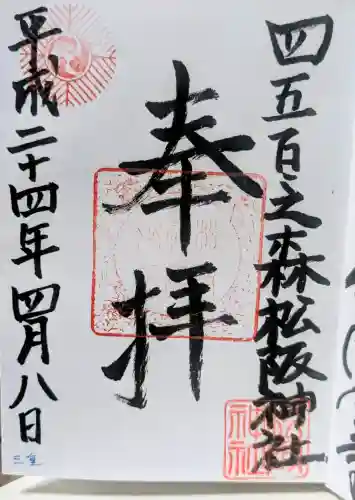 四五百之森松阪神社
奉拝
平成二十四年四月八日
三重